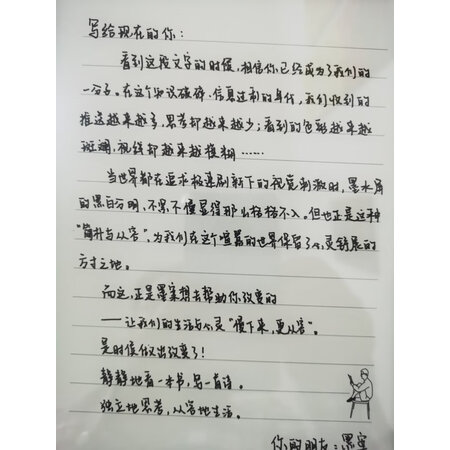 写给现在的你：
看到这段文字的时候，相信你已经成为了我们的
一份子。在这个知识破碎、信息过剩的时代，我们收到的
推送越来越多，思考却越来越少；看到的色彩越来越
斑斓，视线却越来越模糊……
当世界都在追求极速刷新下的视觉刺激时，墨水屏
的黑白分明，不紧不慢显得那么格格不入。但也正是这种
“简朴与从容”，为我们在这个喧嚣的世界保留了心灵舒展的
方寸之地。
而这，正是墨案想去帮助你改变的
——让我们的生活与心灵“慢下来，更从容”。
是时候做出改变了！
静静地看一本书，写一首诗。
独立地思考，从容地生活。
你的朋友：墨案